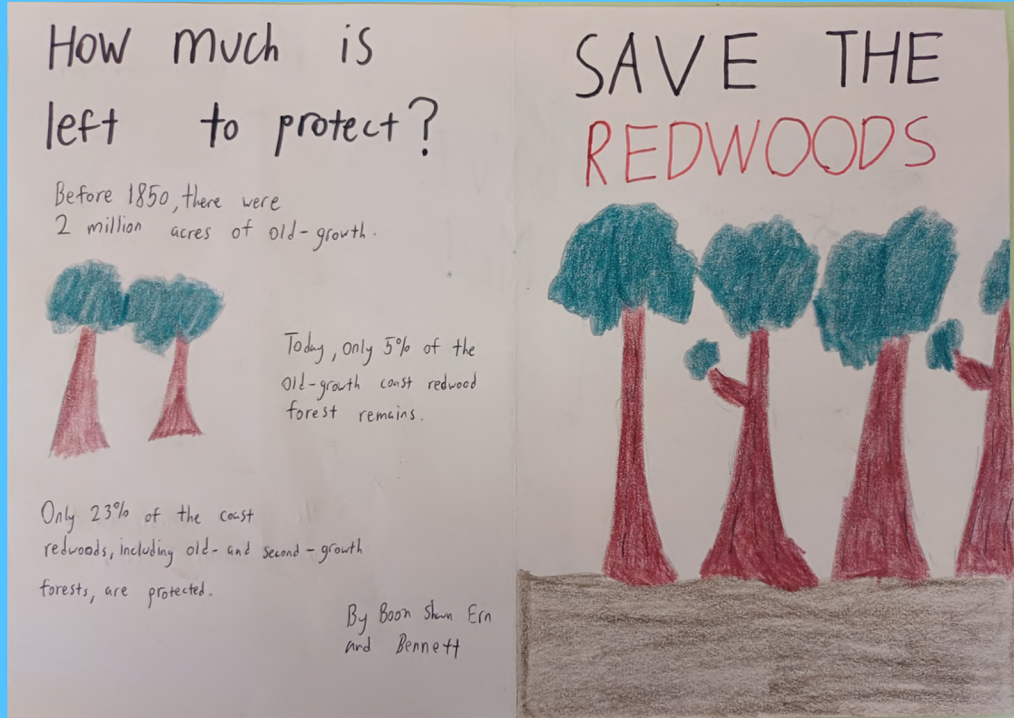 How much is
left to protect?
Before 1850, there were
2 million acres of old-growth.
Today, only 5% of the
old-growth coast redwood
forest remains.
Only 23% of the coast
redwoods, including old- and second-growth
forests, are protected.
By Boon Shawn Ern
and Bennett
SAVE THE
REDWOODS